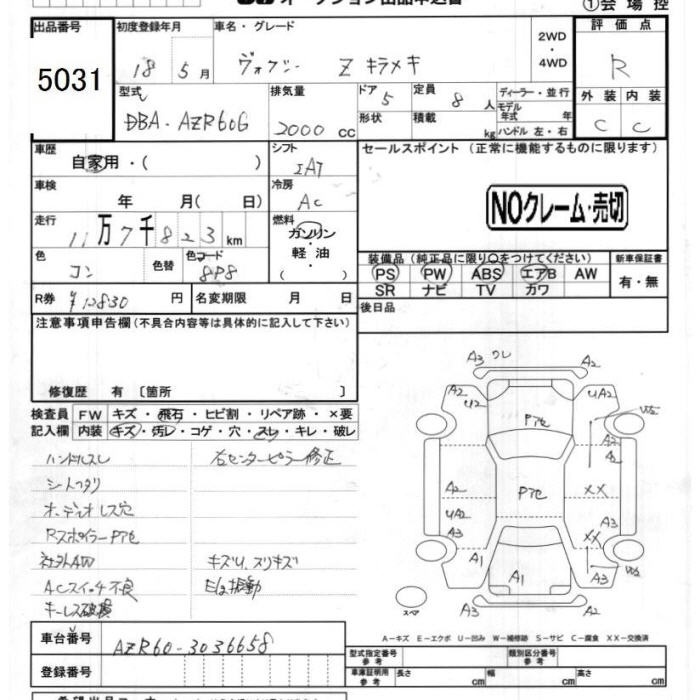 ①会場控
出品番号
5031
初度登録年月
18年5月
車名・グレード
ヴォクシー Z キラメキ
2WD
・
4WD
評価点
R
型式
DBA-AZR60G
排気量
2000 cc
ドア
5
定員
8人
形状
積載 kg
ディーラー・並行
モデル年式 年
ハンドル 左・右
外装 内装
C C
車歴
自家用・( )
シフト
IAT
セールスポイント (正常に機能するものに限ります)
車検
年 月( 日)
冷房
AC
NOクレーム・売切
走行
11万7千823km
燃料
ガソリン
軽油
( )
色
コン
色替
色コード
8P8
装備品 (純正品に限り○をつけてください)
PS PW ABS エアB AW
SR ナビ TV カワ
新車保証書
有・無
R券
¥12830円
名変期限 月 日
後日品
注意事項申告欄 (不具合内容等は具体的に記入して下さい)
修復歴 有 〔箇所 〕
検査員記入欄
FW キズ・飛石・ヒビ割・リペア跡・×要
内装 キズ・汚レ・コゲ・穴・スレ・キレ・破レ
ハンドルスレ
右センターピラー修正
シートヘタリ
オーディオレス穴
RスポイラーPア色
社外AW
キズU、スリキズ
ACスイッチ不良
E/g振動
キーレス破損
A3 ワレ A2
A2 U2
UA2
Pア色
A2 UA2
Pア色
XX
A2
A3
A2
XX
A1
A1
A3
A3 A2
スペア
A-キズ E-エクボ U-凹み W-補修跡 S-サビ C-腐食 XX-交換済
車台番号
AZR60-3036658
登録番号
型式指定番号 参考
類別区分番号 参考
車庫証明用 参考
長さ cm 幅 cm 高さ cm